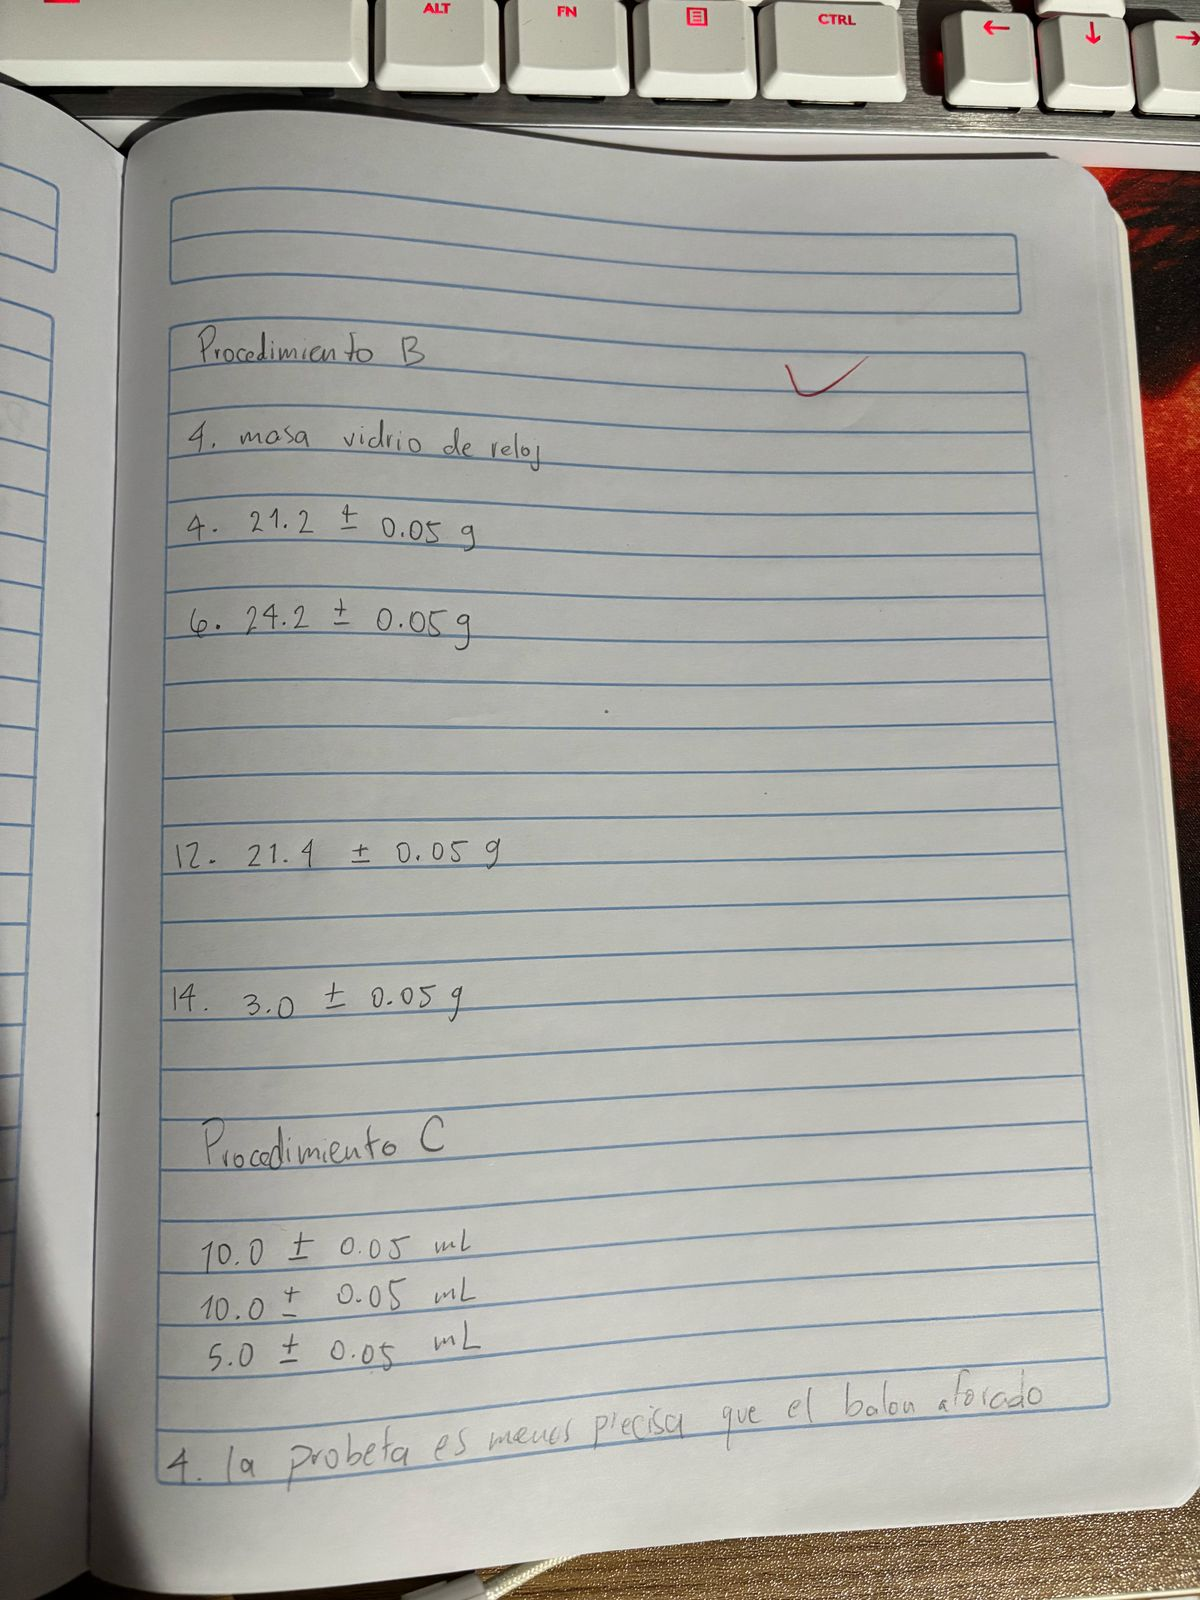 ALT
FN
CTRL
Procedimiento B
4. masa vidrio de reloj
4. 21.2 ± 0.05 g
6. 24.2 ± 0.05 g
12. 21.4 ± 0.05 g
14. 3.0 ± 0.05 g
Procedimiento C
10.0 ± 0.05 mL
10.0 ± 0.05 mL
5.0 ± 0.05 mL
4. la probeta es menos precisa que el balon aforado